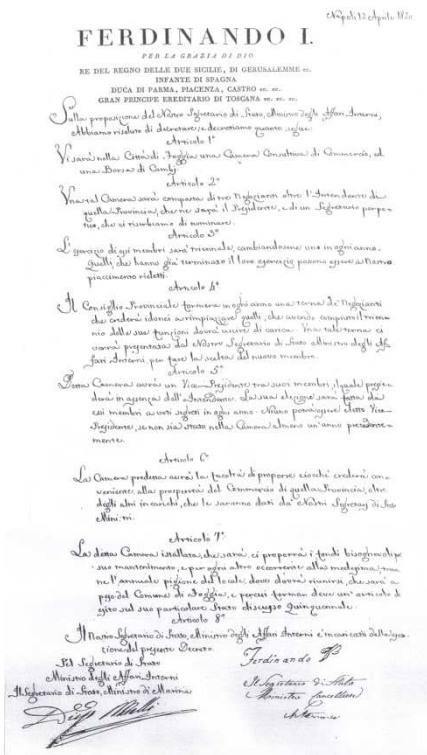 Napoli 12 Aprile 1820
FERDINANDO I.
PER LA GRAZIA DI DIO
RE DEL REGNO DELLE DUE SICILIE, DI GERUSALEMME ec.
INFANTE DI SPAGNA
DUCA DI PARMA, PIACENZA, CASTRO ec. ec.
GRAN PRINCIPE EREDITARIO DI TOSCANA ec. ec. ec.
Sulla proposizione del Nostro Segretario di Stato, Ministro degli Affari Interni,
Abbiamo risoluto di decretare, e decretiamo quanto segue
Articolo 1°
Vi sarà nella Città di Foggia una Camera Consultiva di Commercio, ed
una Borsa di Cambj.
Articolo 2°
Una tal Camera sarà composta di tre Negozianti oltre l'Intendente di
quella Provincia, che ne sarà il Presidente, e di un Segretario perpe-
tuo, che ci riserbiamo di nominare.
Articolo 3°
L'esercizio di essi membri sarà triennale, cambiandosene uno in ogni anno.
Quelli che hanno già terminato il loro esercizio possono essere a Nostro
piacimento rieletti.
Articolo 4°
Il Consiglio Provinciale formerà in ogni anno una terna de' Negozianti
che crederà idonei a rimpiazzare quelli, che avendo compiuto il trien-
nio delle sue funzioni dovrà uscire di carica. Una tale terna ci
verrà presentata dal Nostro Segretario di Stato Ministro degli Af-
fari Interni, per fare la scelta del nuovo membro.
Articolo 5°
Detta Camera avrà un Vice-Presidente tra suoi membri, il quale presie-
derà in assenza dell'Intendente. La sua elezione sarà fatta da
essi membri a voti segreti in ogni anno. Niuno potrà essere eletto Vice-
Presidente, se non sia stato nella Camera almeno un'anno precedente-
mente.
Articolo 6°
La Camera predetta avrà la facoltà di proporre ciocchè crederà con-
veniente alla prosperità del Commercio di quella Provincia, oltre
degli altri incarichi, che le saranno dati da' Nostri Segretarj di Stato
Ministri.
Articolo 7°
La detta Camera istallata, che sarà, ci proporrà i fondi bisognevoli pe'l
suo mantenimento, e per ogni altro occorrente alla medesima, tran-
ne l'annuale pigione del locale, dove dovrà riunirsi, che sarà a
peso del Comune di Foggia, e perciò formar deve un'articolo di
esito sul suo particolare Stato discusso Quinquennale.
Articolo 8°
Il Nostro Segretario di Stato, Ministro degli Affari Interni è incaricato della esecu-
zione del presente Decreto.
Pel Segretario di Stato
Ministro degli Affari Interni
Il Segretario di Stato, Ministro di Marina
Ferdinando
Il Segretario di Stato
Ministro Cancelliere